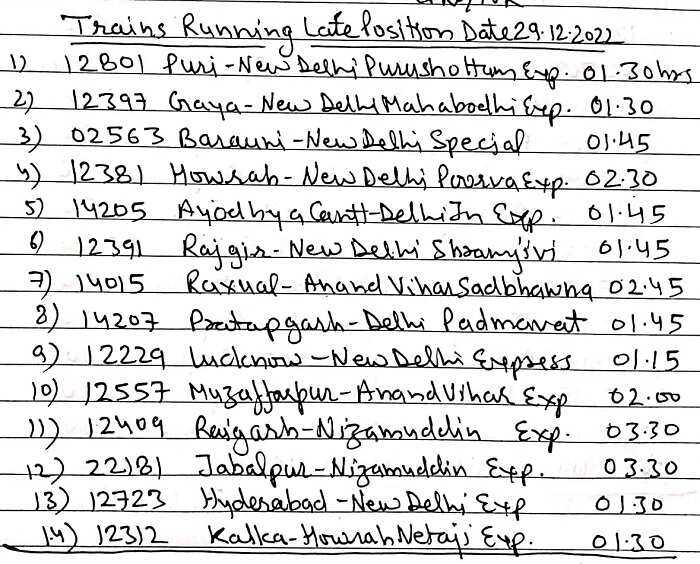 Trains Running Late Position Date 29.12.2022
1) 12801 Puri-New Delhi Purushottam Exp. 01.30hrs
2) 12397 Gaya-New Delhi Mahabodhi Exp. 01.30
3) 02563 Barauni-New Delhi Special 01.45
4) 12381 Howrah-New Delhi Poorva Exp. 02.30
5) 14205 Ayodhya Cantt-Delhi Jn Exp. 01.45
6) 12391 Rajgir-New Delhi Shramjivi 01.45
7) 14015 Raxual-Anand Vihar Sadbhawna 02.45
8) 14207 Pratapgarh-Delhi Padmavat 01.45
9) 12229 Lucknow-New Delhi Express 01.15
10) 12557 Muzaffarpur-Anand Vihar Exp 02.00
11) 12409 Raigarh-Nizamuddin Exp. 03.30
12) 22181 Jabalpur-Nizamuddin Exp. 03.30
13) 12723 Hyderabad-New Delhi Exp 01.30
14) 12312 Kalka-Howrah Netaji Exp. 01.30